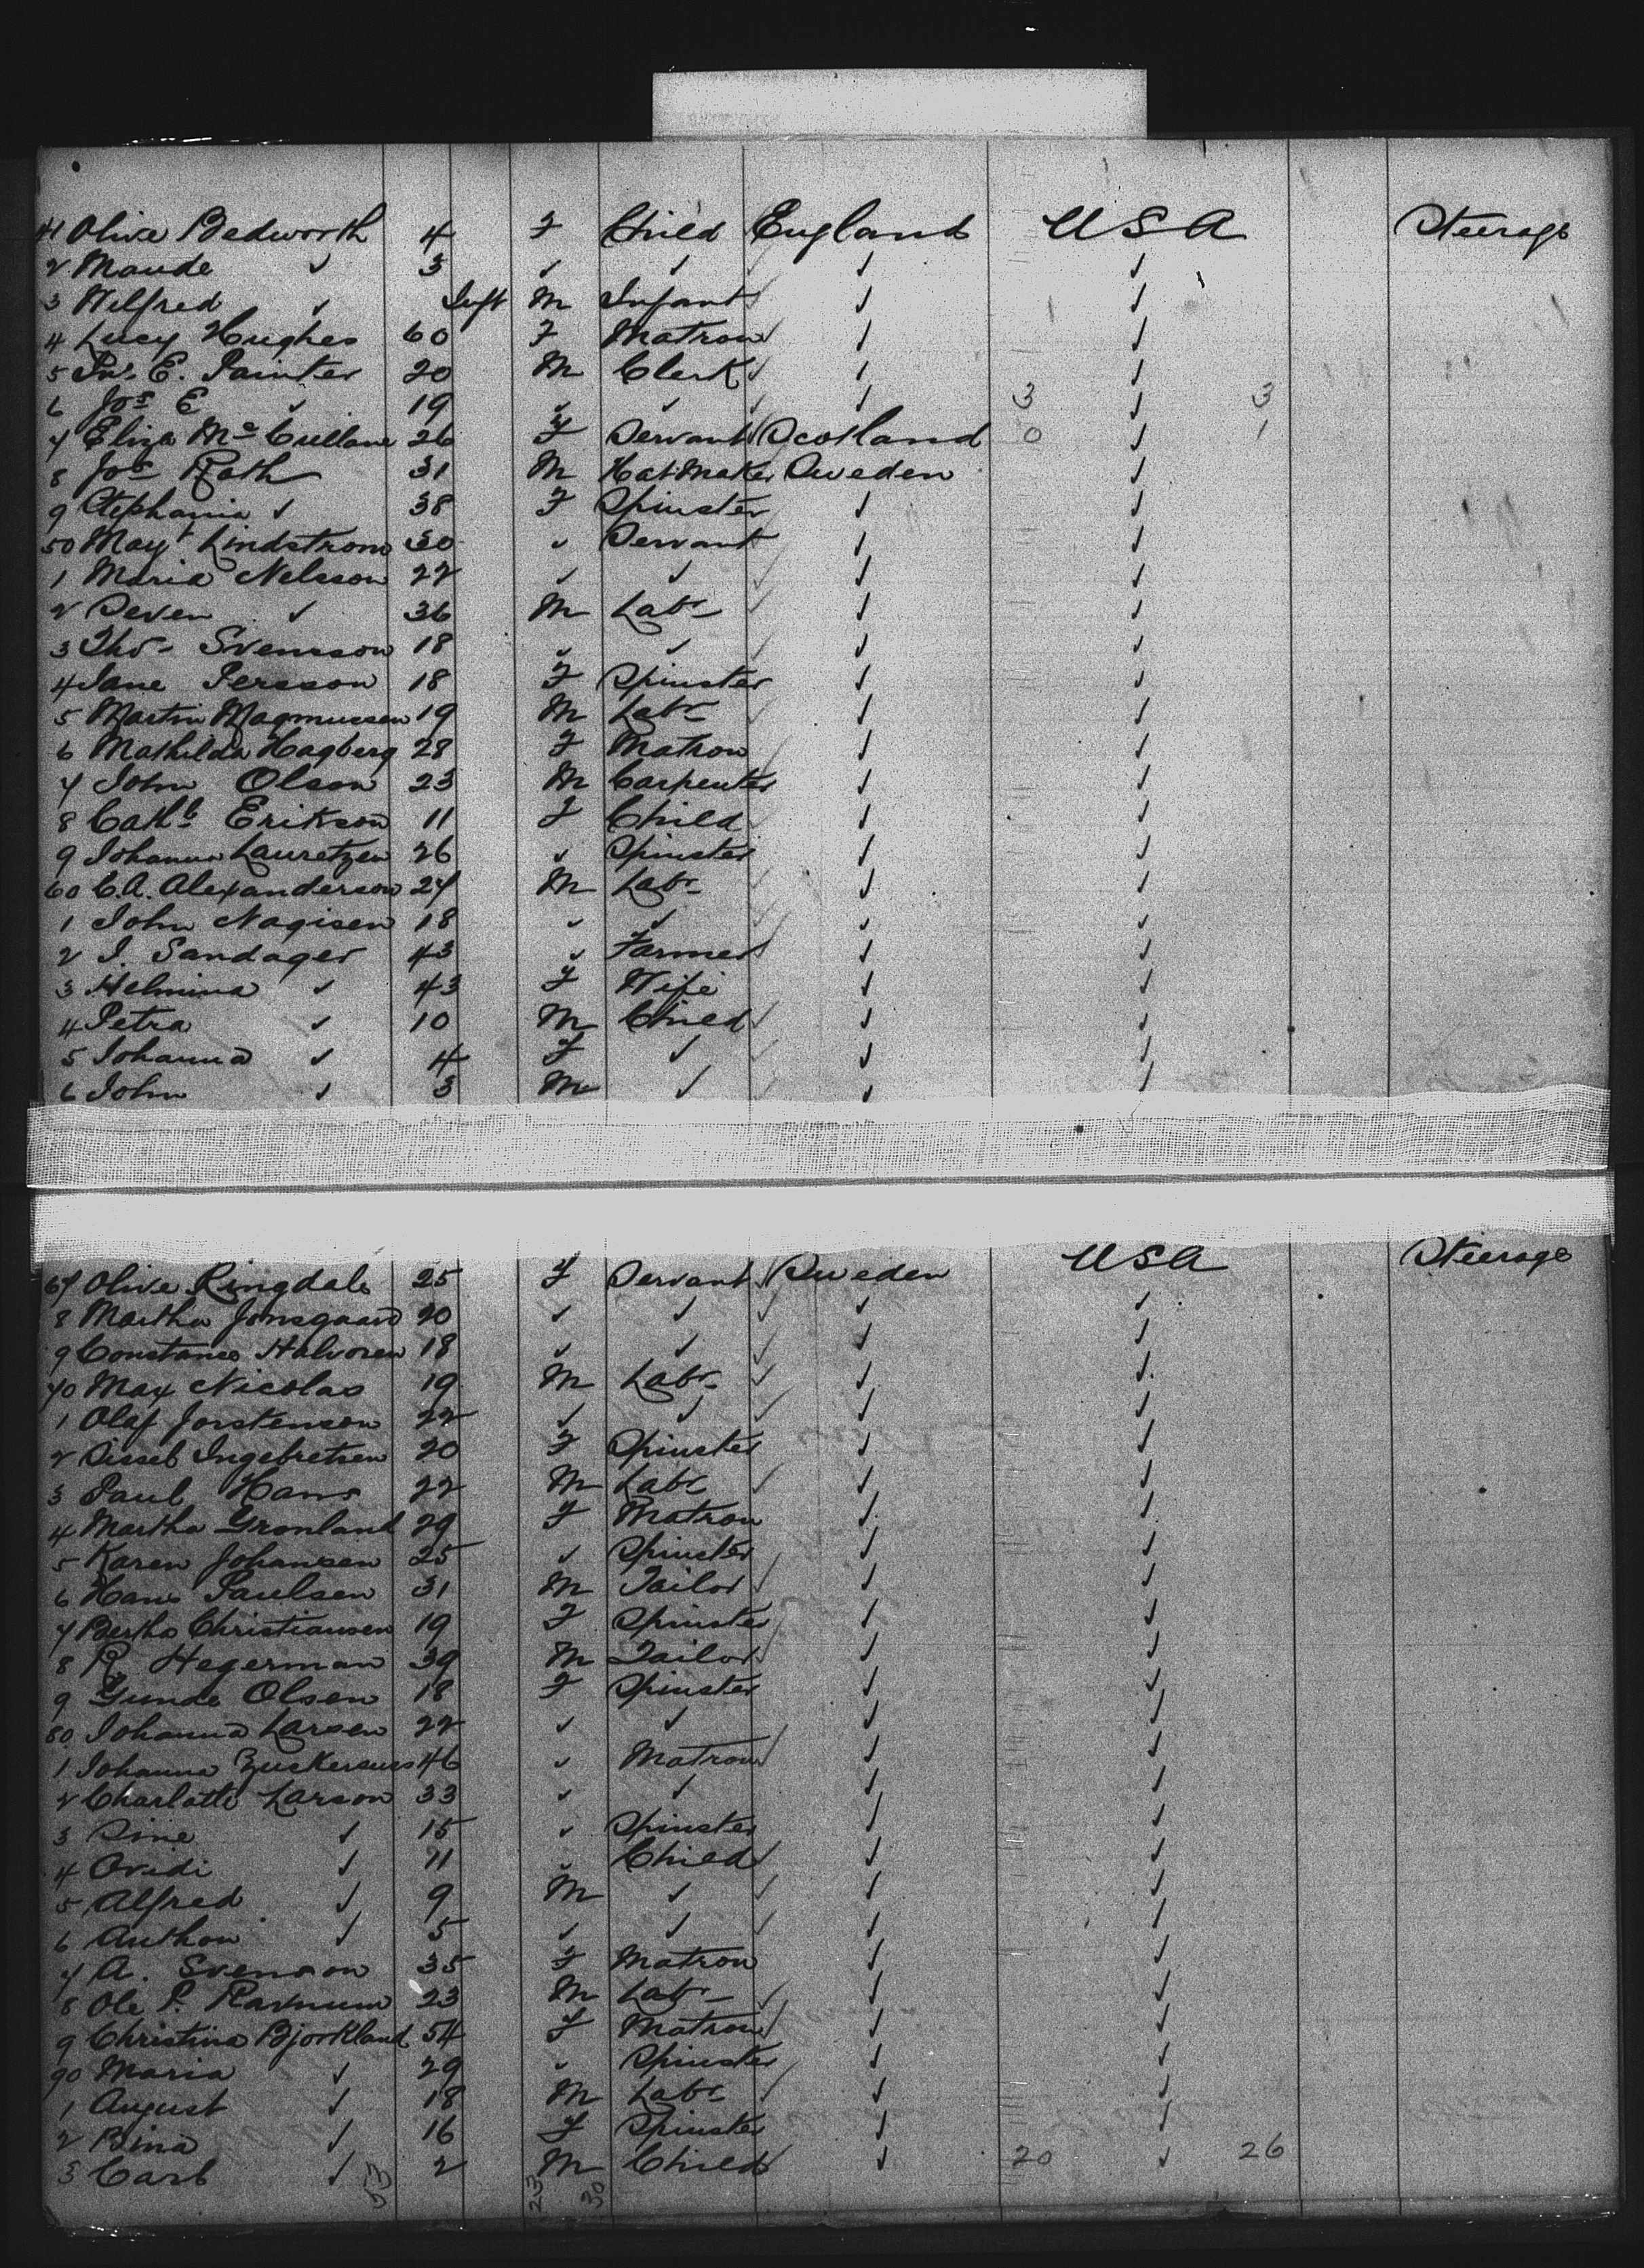 41 Olive Bedworth 4 F Child England USA Steerage
2 Maude ✓ 3 ✓ ✓ ✓ ✓ ✓
3 Wilfred ✓ Inft M Infant ✓ ✓ ✓
4 Lucy Hughes 60 F Matron ✓ ✓
5 E. Painter 20 M Clerk ✓ ✓ ✓
6 Jos E ✓ 19 ✓ ✓ ✓ ✓ 3 ✓ 3
7 Eliza Mc Cullane 26 F Servant ✓ Scotland 0 ✓ 1
8 Jos Rath 31 M Hat Maker Sweden ✓
9 Stephania ✓ 38 F Spinster ✓ ✓
50 Mayt Lindstrom 30 ✓ Servant ✓ ✓
1 Maria Nelsson 22 ✓ ✓ ✓ ✓ ✓
2 Seven ✓ 36 M Labr ✓ ✓ ✓
3 Thos Svensson 18 ✓ ✓ ✓ ✓ ✓
4 Jane Persson 18 F Spinster ✓ ✓
5 Martin Magmussen 19 M Labr ✓ ✓ ✓
6 Mathilda Hagberg 28 F Matron ✓ ✓ ✓
7 John Olson 23 M Carpenter ✓ ✓
8 Cath Erikson 11 F Child ✓ ✓ ✓
9 Johanna Lauretzen 26 ✓ Spinster ✓ ✓
60 C.A. Alexanderson 27 M Labr ✓ ✓ ✓
1 John Nagisen 18 ✓ ✓ ✓ ✓ ✓
2 J. Sandager 43 ✓ Farmer ✓ ✓
3 Helmina ✓ 43 F Wife ✓ ✓
4 Petra ✓ 10 M Child ✓ ✓ ✓
5 Johanna ✓ 4 F ✓ ✓ ✓ ✓
6 John ✓ 3 M ✓ ✓ ✓ ✓
67 Olive Ringdale 25 F Servant ✓ Sweden USA Steerage
8 Martha Jonsgaard 20 ✓ ✓ ✓ ✓ ✓
9 Constance Halvoren 18 ✓ ✓ ✓ ✓ ✓
70 Max Nicolas 19 M Labr ✓ ✓ ✓
1 Olaf Jorstenson 22 ✓ ✓ ✓ ✓ ✓
2 Sissel Ingebretsen 20 F Spinster ✓ ✓
3 Paul Hans 22 M Labr ✓ ✓ ✓
4 Martha Gronland 29 F Matron ✓ ✓
5 Karen Johansen 25 ✓ Spinster ✓ ✓
6 Hans Paulsen 31 M Tailor ✓ ✓ ✓
7 Bertha Christiansen 19 F Spinster ✓ ✓
8 R. Hegerman 39 M Tailor ✓ ✓ ✓
9 Gunde Olsen 18 F Spinster ✓ ✓
80 Johanna Larsen 22 ✓ ✓ ✓ ✓ ✓
1 Johanna 46 ✓ Matron ✓ ✓ ✓
2 Charlotte Larson 33 ✓ ✓ ✓ ✓
3 Sine ✓ 15 ✓ Spinster ✓ ✓
4 Ovidi ✓ 11 ✓ Child ✓ ✓ ✓
5 Alfred ✓ 9 M ✓ ✓ ✓ ✓
6 Anthon ✓ 5 ✓ ✓ ✓ ✓ ✓
7 A. Svenson 35 F Matron ✓ ✓
8 Ole P. 23 M Labr ✓ ✓ ✓
9 Christina Bjorkland 54 F Matron ✓ ✓ ✓
90 Maria ✓ 29 ✓ Spinster ✓ ✓
1 August ✓ 18 M Labr ✓ ✓ ✓
2 Bina ✓ 16 F Spinster ✓ ✓
3 Carl ✓ 2 M Child ✓ ✓ 20 ✓ 26
53 23 30